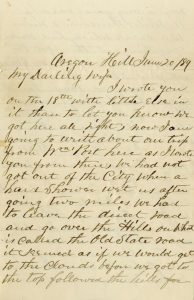 Oregon Hill June 20 / 89
My Darling Wife
I wrote you
on the 18th with little else in
it than to let you know we
got here all right now I am
going to write about our trip
from
you from there we had not
got out of the City when a
hard Shower wet us after
going two miles we has
to leave the direct road
and go over the Hills on what
is called the Old State Road
it seemed as if we would get
to the Clouds before we got to
the top followed the hills for